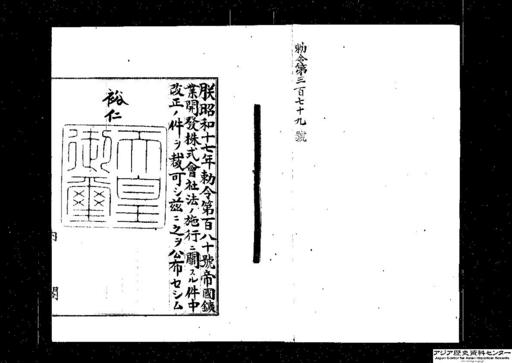 勅令第三百七十九號
朕昭和十七年勅令第百八十號帝國鑛
業開發株式會社法ノ施行ニ關スル件中
改正ノ件ヲ裁可シ玆ニ之ヲ公布セシム
裕仁
天皇
御璽
内閣
アジア歴史資料センター
Japan Center for Asian Historical Records